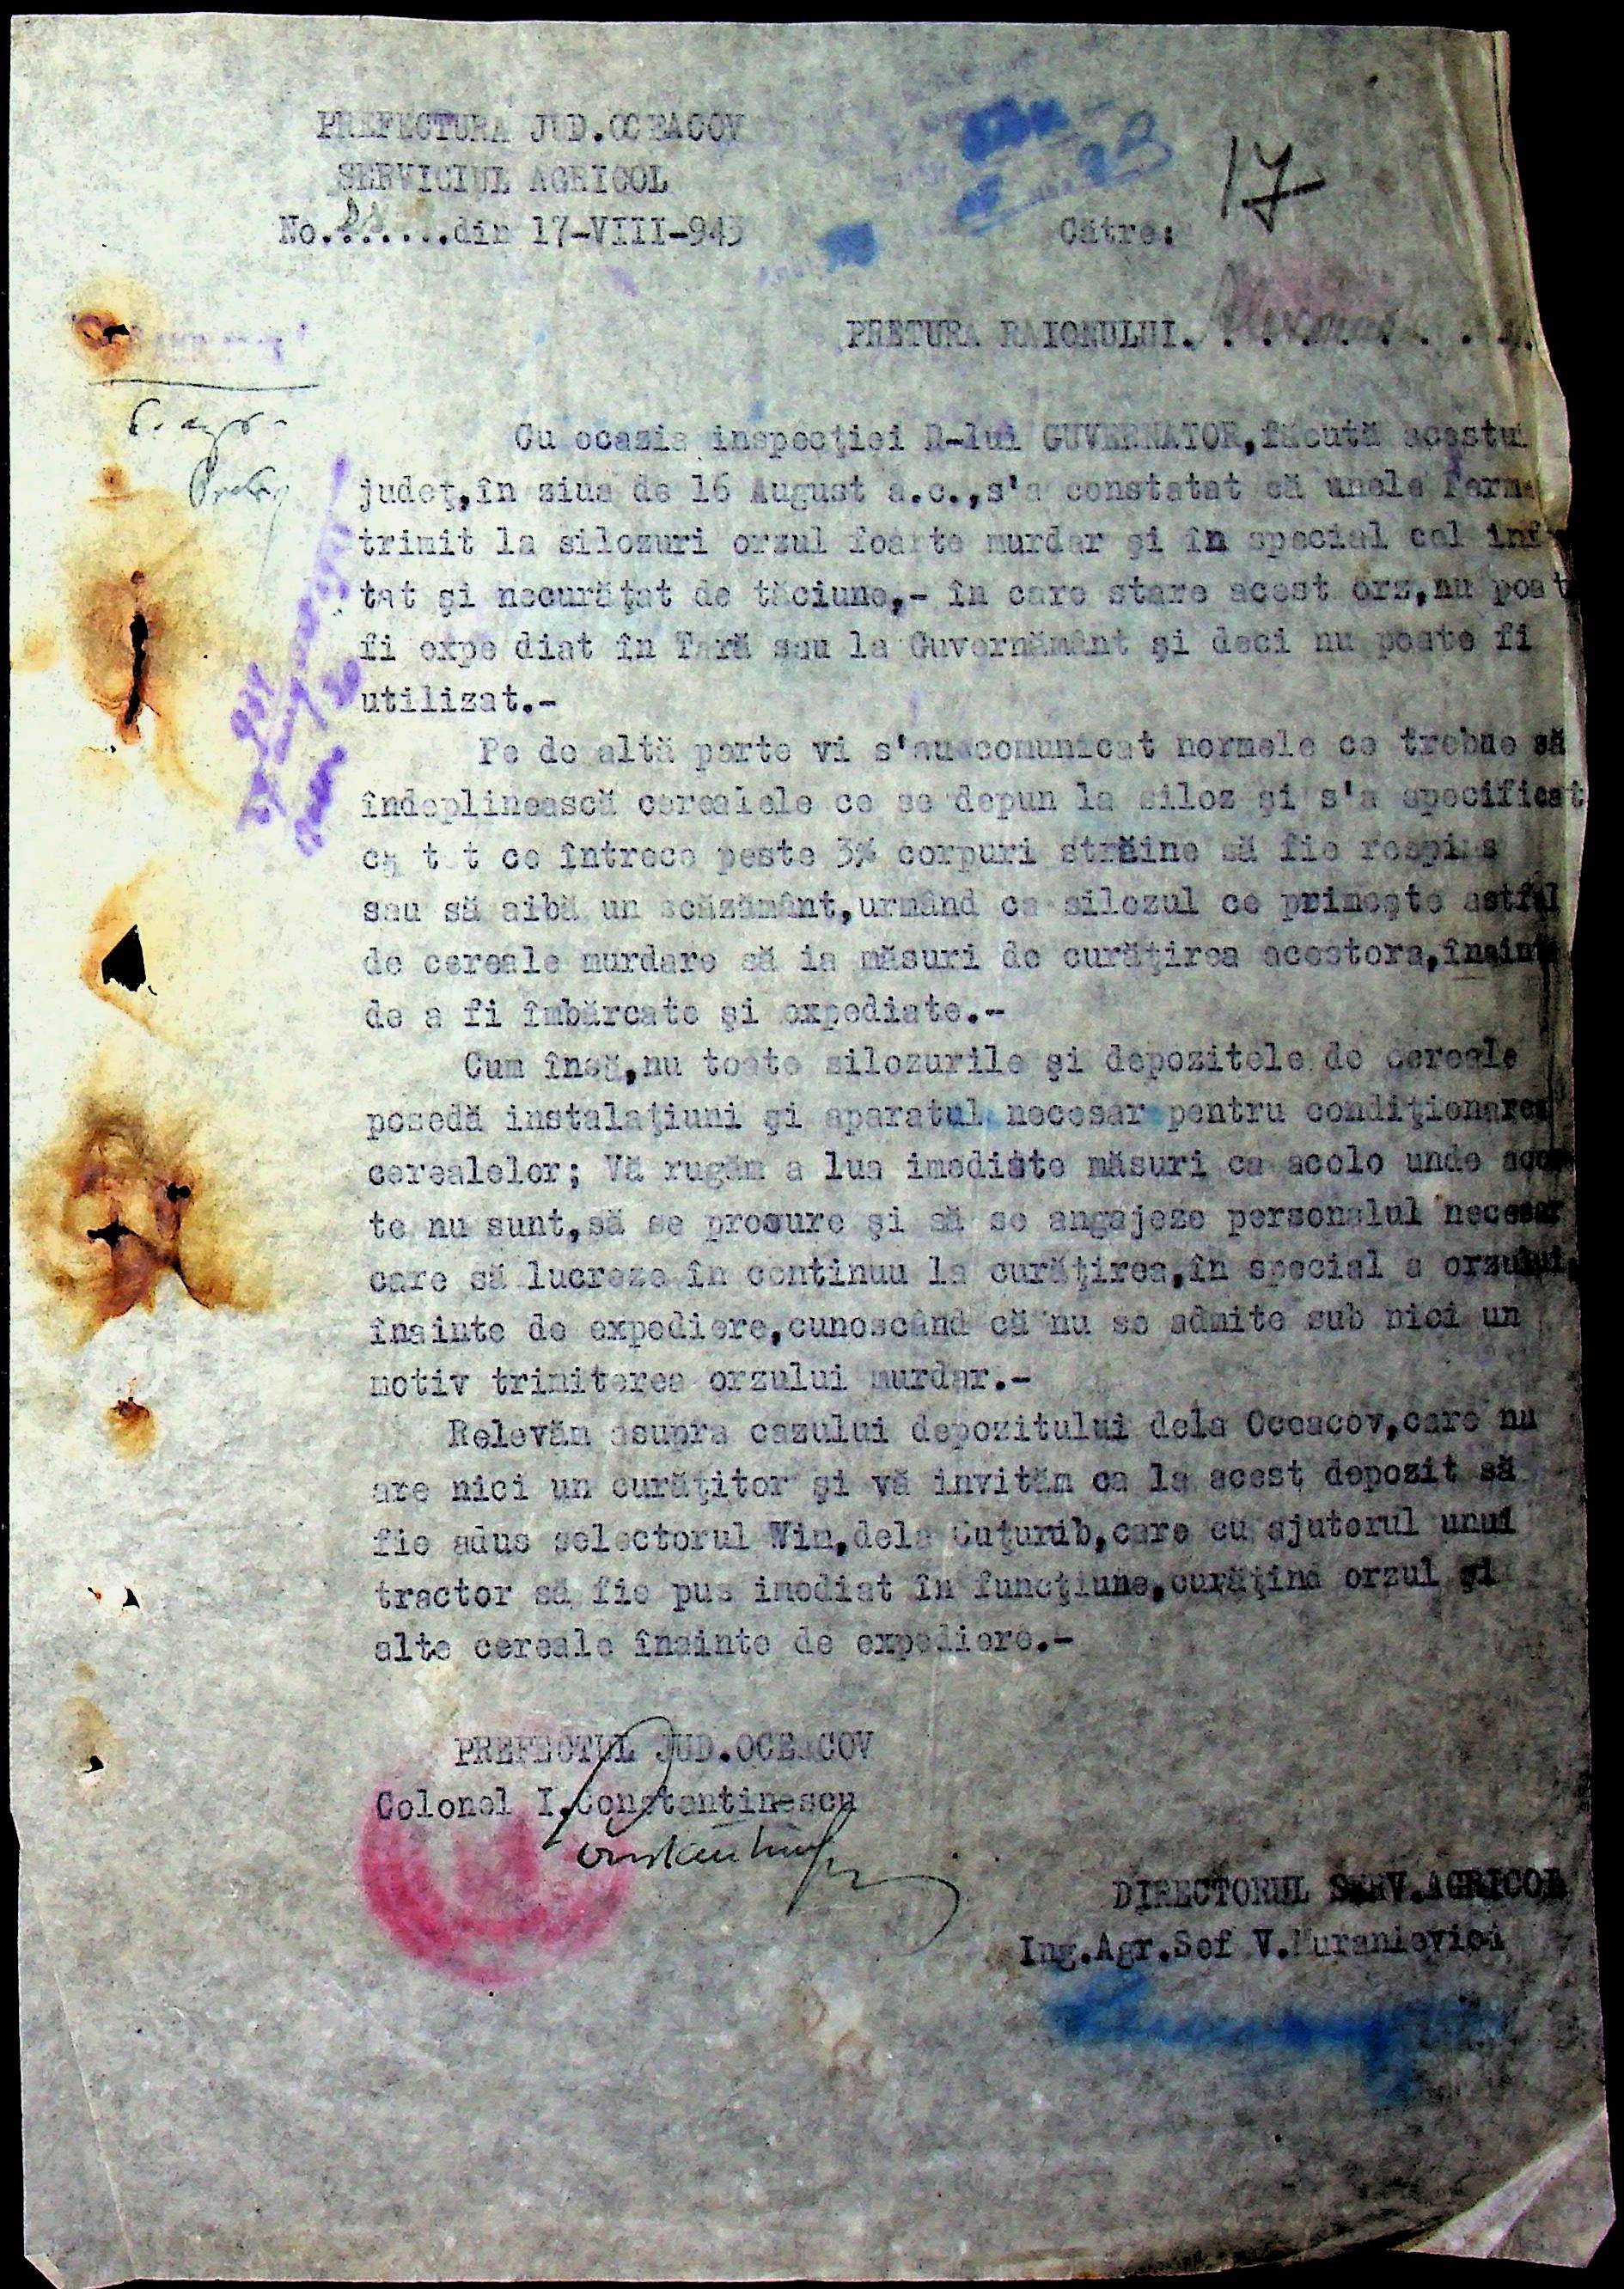 PREFECTURA JUD.OCEACOV
SERVICIUL AGRICOL
No.......din 17-VIII-943
17
Către:
PRETURA RAIONULUI.
Cu ocazia inspecţiei D-lui GUVERNATOR,făcută acestui
judeţ,în ziua de 16 August a.c.,s'a constatat că unele Ferme
trimit la silozuri orzul foarte murdar şi în special cel inf
tat şi necurăţat de tăciune,- în care stare acest orz,nu poat
fi expe diat în Ţară sau la Guvernământ şi deci nu poate fi
utilizat.-
Pe de altă parte vi s'au comunicat normele ce trebue să
îndeplinească cerealele ce se depun la siloz şi s'a specificat
că tot ce întrece peste 3% corpuri străine să fie respins
sau să aibă un scăzământ,urmând ca silozul ce primeşte astfel
de cereale murdare să ia măsuri de curăţirea acestora,înainte
de a fi îmbărcate şi expediate.-
Cum însă,nu toate silozurile şi depozitele de cereale
posedă instalaţiuni şi aparatul necesar pentru condiţionarea
cerealelor; Vă rugăm a lua imediate măsuri ca acolo unde aces
te nu sunt,să se procure şi să se angajeze personalul necesar
care să lucreze în continuu la curăţirea,în special a orzului,
înainte de expediere,cunoscând că nu se admite sub nici un
motiv trimiterea orzului murdar.-
Relevăm asupra cazului depozitului dela Oceacov,care nu
are nici un curăţitor şi vă invităm ca la acest depozit să
fie adus selectorul Wim,dela Cuţurub,care cu ajutorul unui
tractor să fie pus imediat în funcţiune,curăţind orzul şi
alte cereale înainte de expediere.-
PREFECTUL JUD.OCEACOV
Colonel I.Constantinescu
DIRECTORUL SERV.AGRICOL
Ing.Agr.Sef V.Muranievici